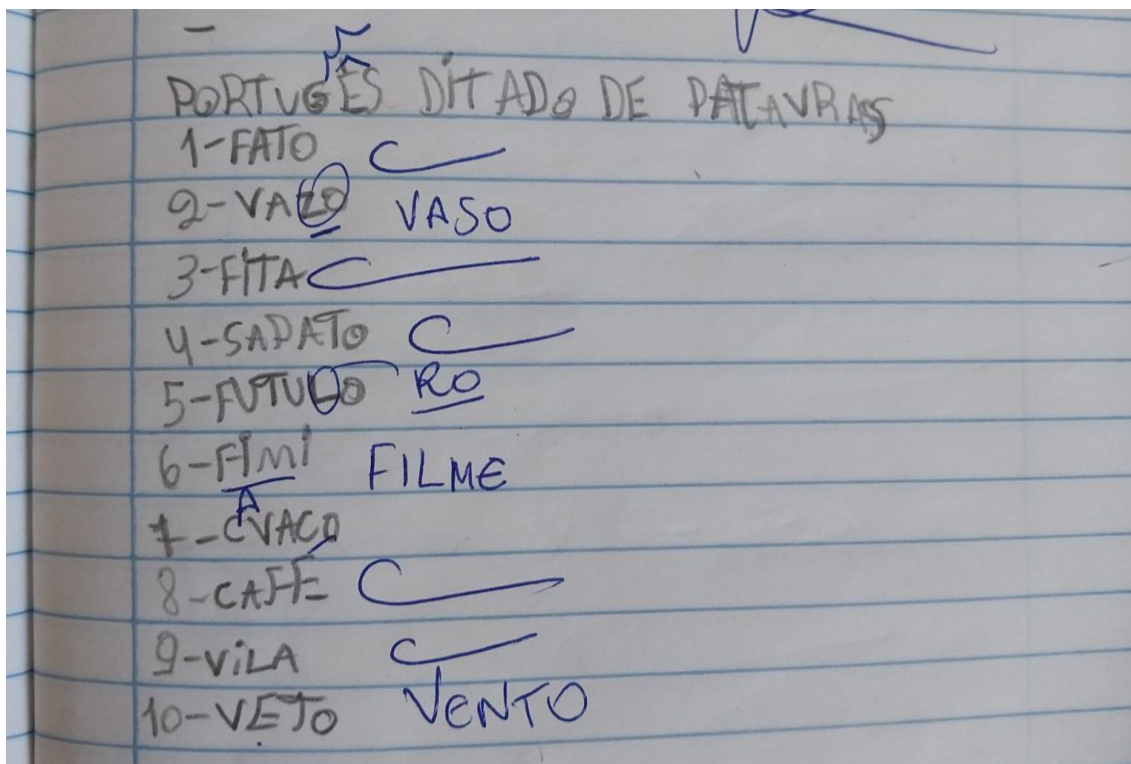 PORTUGÊS DITADO DE PALAVRAS
1-FATO C
2-VAZO VASO
3-FITA C
4-SAPATO C
5-FUTULO RO
6-FIMI FILME
A
7-CVACO
8-CAFÉ C
9-VILA C
10-VETO VENTO